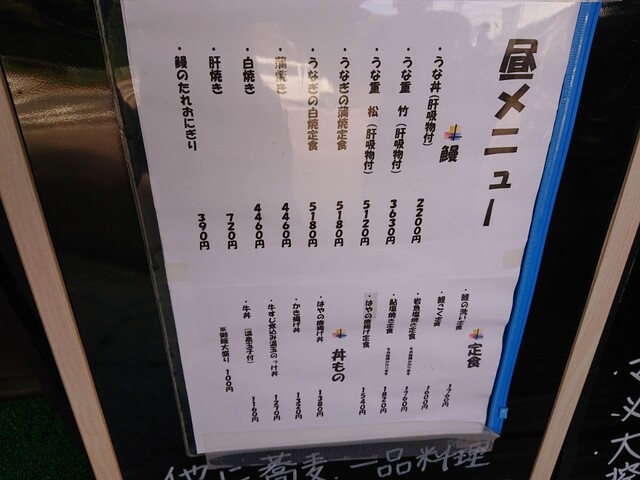 昼メニュー
鰻
・うな丼(肝吸物付) 2200円
・うな重 竹(肝吸物付) 3630円
・うな重 松(肝吸物付) 5120円
・うなぎの蒲焼定食 5180円
・うなぎの白焼定食 5180円
・蒲焼き 4460円
・白焼き 4460円
・肝焼き 720円
・鰻のたれおにぎり 390円
定食
・鯉の洗い定食 1760円
・鯉こく定食 1600円
・岩魚塩焼き定食 1760円
・鮎塩焼き定食 1820円
・はやの唐揚げ定食 1540円
丼もの
・はやの唐揚丼 1380円
・かき揚げ丼 1320円
・牛すじ煮込み温玉のっけ丼 1270円
・牛丼 (温泉玉子付) 1160円
※御飯大盛り 100円
他に蕎麦、一品料理